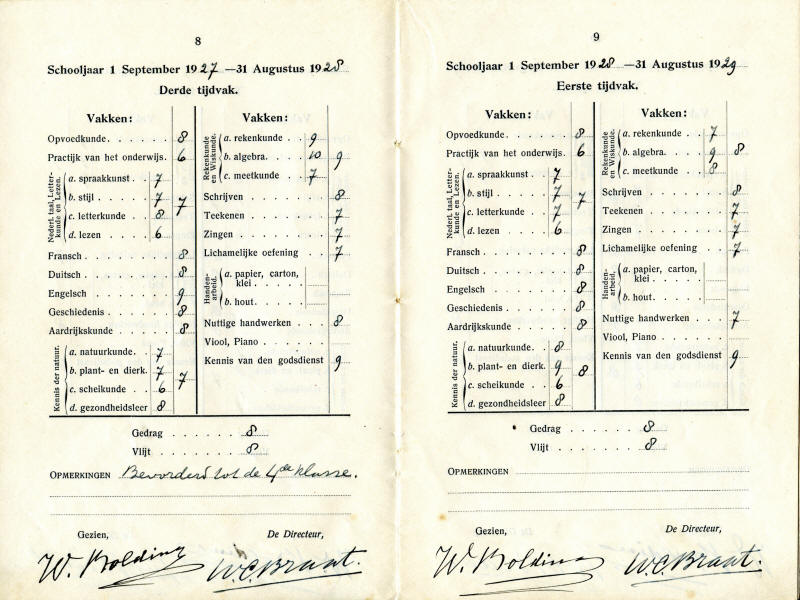 8
Schooljaar 1 September 1927 —31 Augustus 1928
Derde tijdvak.
Vakken:
Opvoedkunde. . . . . . 8
Practijk van het onderwijs. 6
Nederl. taal, Letterkunde en Lezen.
a. spraakkunst . 7
b. stijl . . . 7
c. letterkunde . 8
d. lezen . . . 6
7
Fransch . . . . . . . 8
Duitsch . . . . . . . 8
Engelsch . . . . . . 9
Geschiedenis . . . . . 8
Aardrijkskunde . . . . 8
Kennis der natuur.
a. natuurkunde. . 7
b. plant- en dierk. 7
c. scheikunde . . 6
d. gezondheidsleer 8
7
Vakken:
Rekenkunde en Wiskunde.
a. rekenkunde . 9
b. algebra. . . 10
c. meetkunde . 7
9
Schrijven . . . . . . 8
Teekenen . . . . . . 7
Zingen . . . . . . . 7
Lichamelijke oefening . . 7
Handenarbeid.
a. papier, carton, klei . . . .
b. hout . . . .
Nuttige handwerken . . . 8
Viool, Piano . . . . .
Kennis van den godsdienst 9
Gedrag . . . . . . . 8
Vlijt . . . . . . . 8
OPMERKINGEN Bevorderd tot de 4de klasse.
Gezien,
De Directeur,
W. Bolding
W.C. Braat.
9
Schooljaar 1 September 1928 —31 Augustus 1929
Eerste tijdvak.
Vakken:
Opvoedkunde. . . . . . 8
Practijk van het onderwijs. 6
Nederl. taal, Letterkunde en Lezen.
a. spraakkunst . 7
b. stijl . . . 7
c. letterkunde . 7
d. lezen . . . 6
7
Fransch . . . . . . . 8
Duitsch . . . . . . . 8
Engelsch . . . . . . 8
Geschiedenis . . . . . 8
Aardrijkskunde . . . . 8
Kennis der natuur.
a. natuurkunde. . 8
b. plant- en dierk. 9
c. scheikunde . . 6
d. gezondheidsleer 8
8
Vakken:
Rekenkunde en Wiskunde.
a. rekenkunde . 7
b. algebra. . . 9
c. meetkunde . 8
8
Schrijven . . . . . . 8
Teekenen . . . . . . 7
Zingen . . . . . . . 7
Lichamelijke oefening . . 7
Handenarbeid.
a. papier, carton, klei . . . .
b. hout . . . .
Nuttige handwerken . . . 7
Viool, Piano . . . . .
Kennis van den godsdienst 9
Gedrag . . . . . . . 8
Vlijt . . . . . . . 8
OPMERKINGEN
Gezien,
De Directeur,
W. Bolding
W.C. Braat.